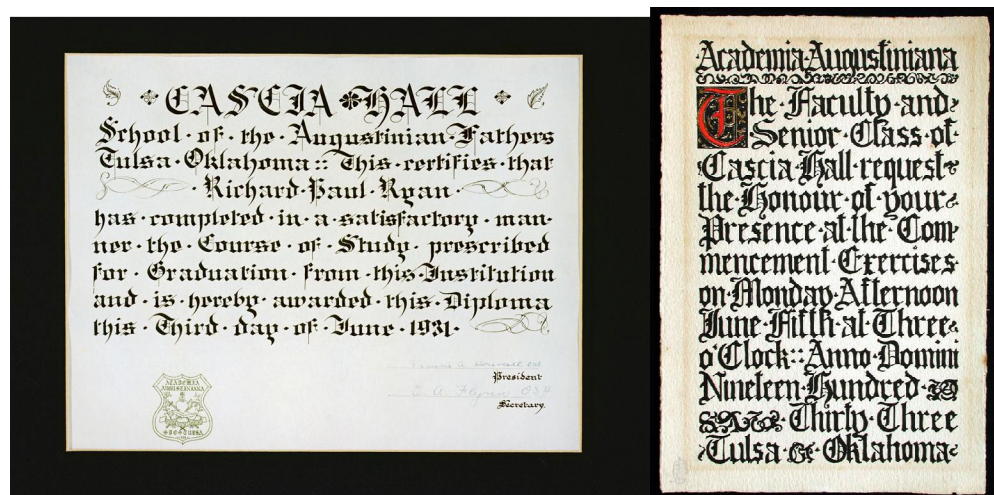 CASCIA HALL
School · of · the · Augustinian · Fathers
Tulsa · Oklahoma :: This · certifies · that
· Richard · Paul · Ryan ·
has · completed · in · a · satisfactory · man-
ner · the · Course · of · Study · prescribed
for · Graduation · from · this · Institution
and · is · hereby · awarded · this · Diploma
this · Third · day · of · June · 1931 ·
President
Secretary.
ACADEMIA
AUGUSTINIANA
Academia · Augustiniana
The · Faculty · and
Senior · Class · of
Cascia · Hall · request
the · Honour · of · your
Presence · at · the · Com-
mencement · Exercises
on · Monday · Afternoon
June · Fifth · at · Three
o'Clock :: Anno · Domini
Nineteen · Hundred
Thirty · Three
Tulsa · Oklahoma